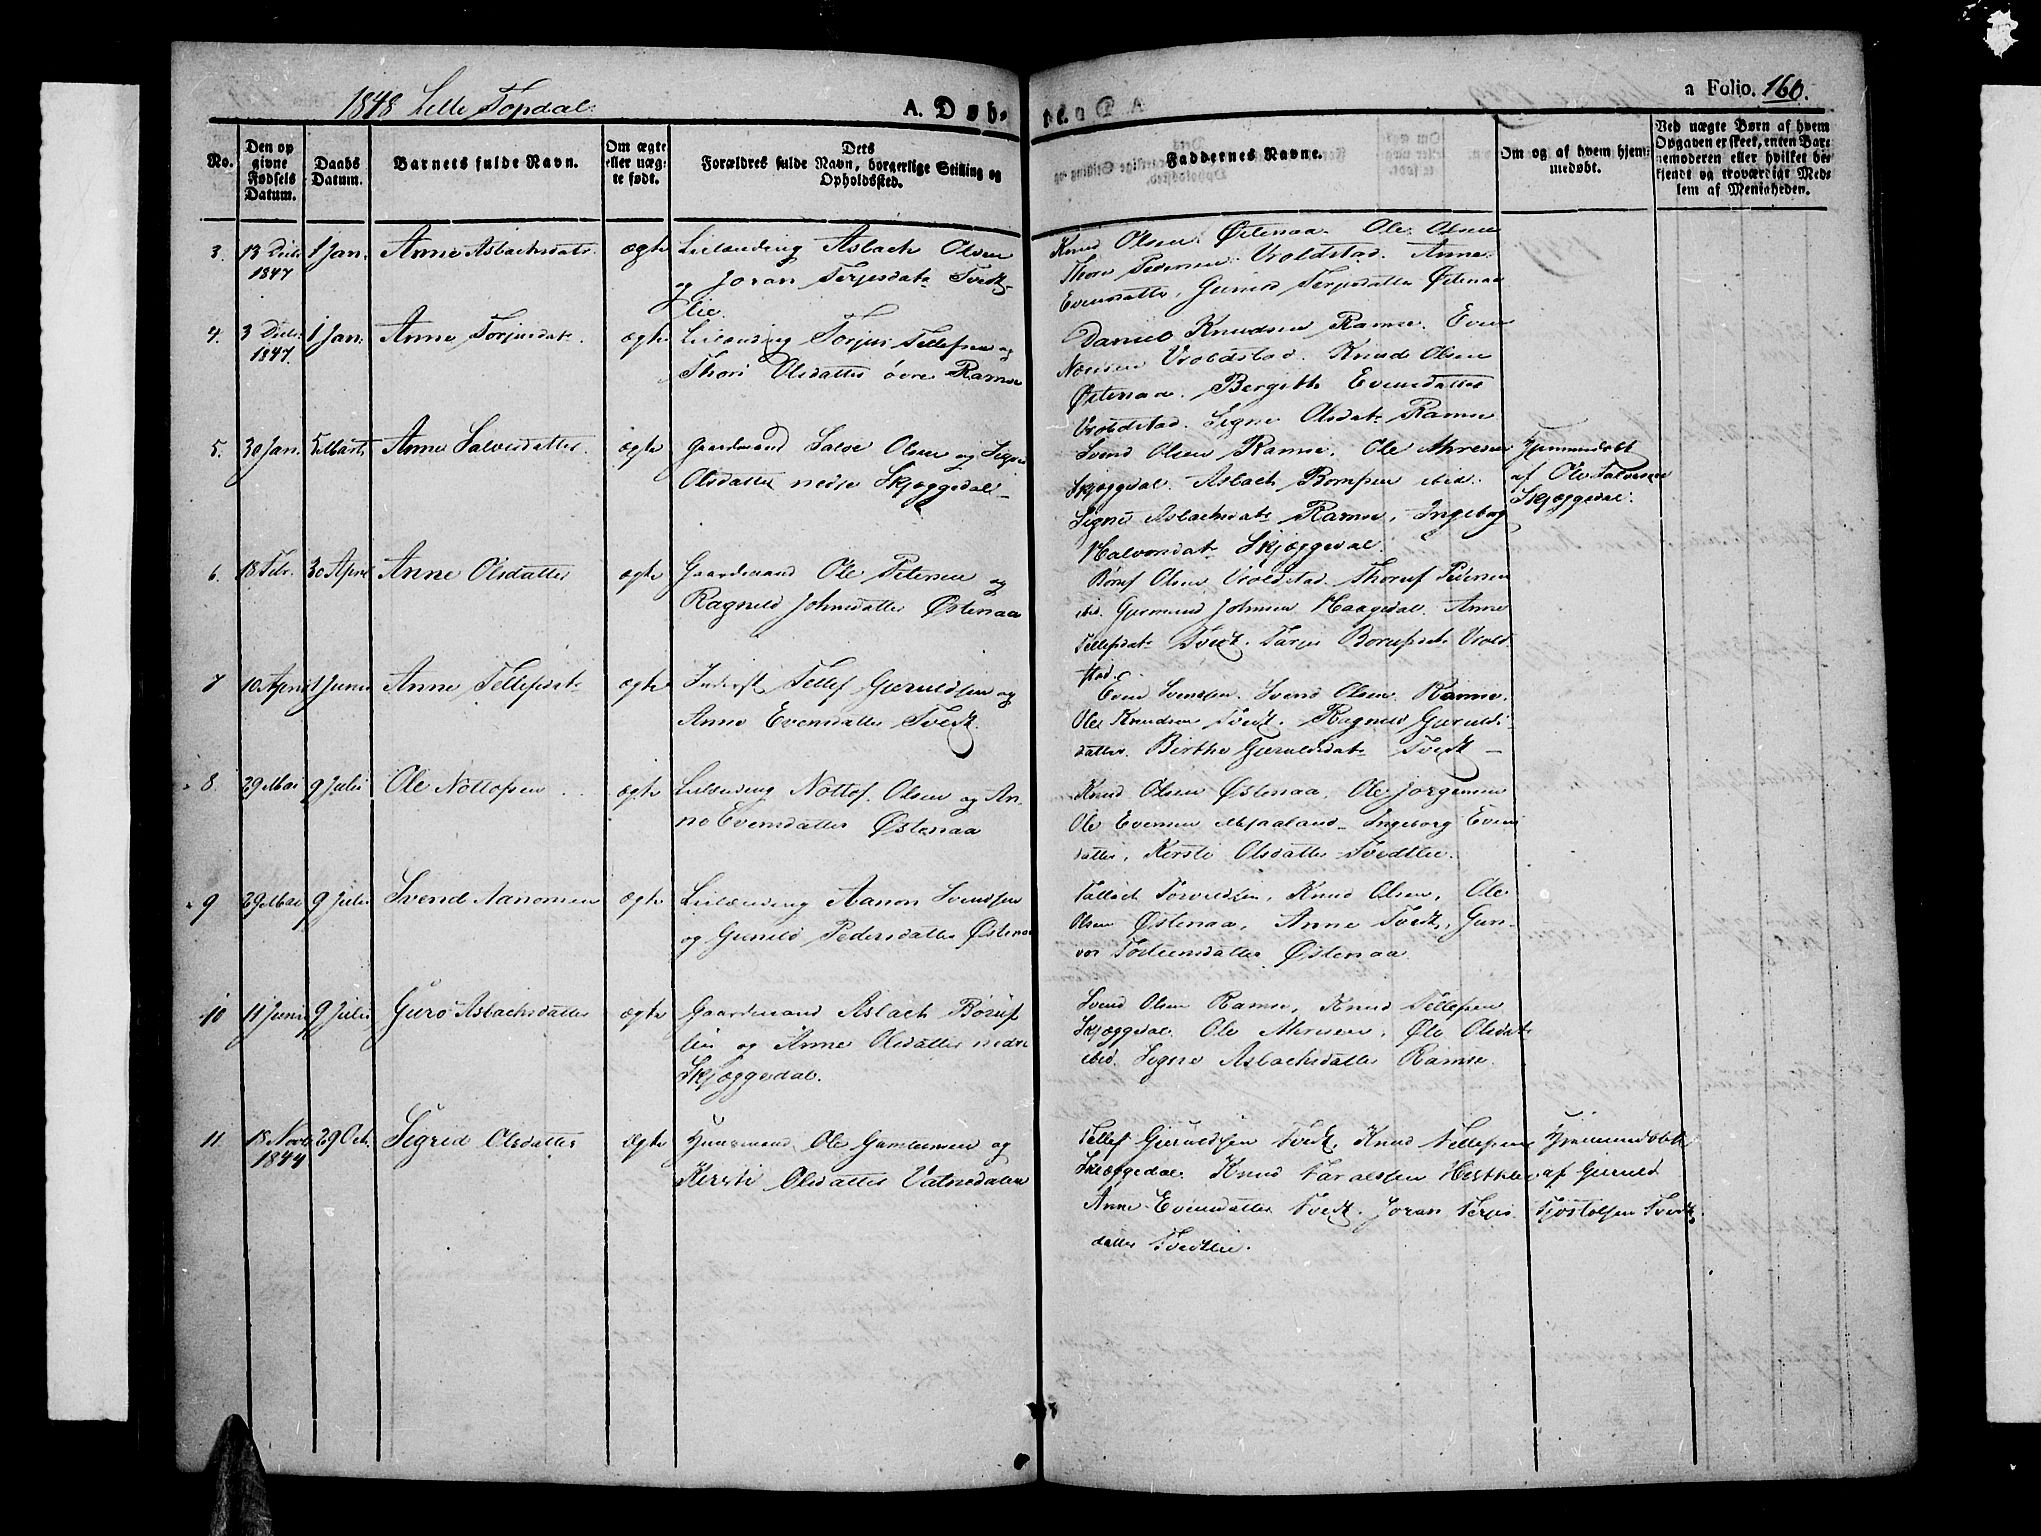 1848 Lille Topdal.
A. Døb-
a Folio. 160.
No.
Den op
givne
Fødsels
Datum.
Daabs
Datum.
Barnets fulde Navn.
Om ægte
eller uæg-
te født.
Dets
Forældres fulde Navn, borgerlige Stilling og
Opholdssted.
Faddernes Navne.
Om og af hvem hjem-
medøbt.
Ved uægte Børn af hvem
Opgaven er skeet, enten Bar-
nemoderen eller hvilket be-
kjendt og troværdigt Med-
lem af Menigheden.
3. 13 Decbr 1 Jan. Anne Aslachsdatr. ægte Leilænding Aslach Olsen
1847
og Joran Terjesdatr Tvedt-
lie.
Knud Olsen Østenaa. Ole Olsen
Thore Pedersen Vroldstad. Anne
Evensdatter, Gunild Terjesdatter Østenaa
4. 3 Decbr 1 Jan. Anne Torjusdatr. ægte Leilænding Torjus Tellefsen og
1847.
Thori Olsdatter øvre Ramse
Daniel Knudsen Ramse. Even
Vroldstad. Knud Olsen
Østenaa. Bergith Evensdatter
Vroldstad. Signe Olsdatr Ramse
5. 30 Jan. 5 Marts Anne Salvesdatter. ægte Gaardmand Salve Olsen og Signe
Olsdatter nedre Skjæggedal.
Svend Olsen Ramse, Ole Ahresen
Skjæggedal. Aslach ibid.
Signe Aslachsdatr Ramse, Ingeborg
Halvorsdatr Skjæggedal.
Hjemmedøbt
af Ole Salvesen
Skjæggedal.
6. 18 Febr. 30 April Anne Olsdatter ægte Gaardmand Ole Petersen og
Ragnild Johnsdatter Østenaa
Børuf Olsen Vroldstad. Thoruf Pedersen
ibid. Gjermund Johnsen Haugedal. Anne
Tellefsdatr Tvedt. Tarje Vrold-
stad.
7 10 April 1 Juni Anne Tellefsdatr ægte Inderst Tellef Gjeruldsen og
Anne Evensdatter Tvedt.
Even Svensen. Svend Olsen Ramse.
Ole Knudsen Tvedt. Ragnild Gjerulds-
datter. Birthe Gjeruldsdatr Tvedt
8. 29 Mai 9 Juli Ole Nottofsen ægte Leilænding Nottof Olsen og An-
ne Evensdatter Østenaa
Knud Olsen Østenaa, Ole Jørgensen
Ole Evensen Mjaaland. Ingeborg Evens
datter, Kersti Olsdatter Tvedtlie.
9 29 Mai 9 Juli Svend Aanonsen ægte Leilænding Aanon Svendsen
og Gunild Pedersdatter Østenaa
Tallach Torvildsen, Knud Olsen, Ole
Olsen Østenaa, Anne Tvedt, Gun-
vor Østenaa.
10 11 Juni 9 Juli Guro Aslachsdatter ægte Gaardmand Aslach Børuf
sen og Anne Olsdatter nedre
Skjæggedal.
Svend Olsen Ramse, Knud Tellefsen
Skjæggedal. Ole Ahresen, Ole Olsdatr
ibid. Signe Aslachsdatter Ramse.
11. 18 Novbr 29 Oct. Sigrid Olsdatter ægte Huusmand Ole Gundersen og
1844
Kersti Olsdatter Vatnedalen
Tellef Gjeruldsen Tvedt, Knud Tellefsen
Skjæggedal. Knud Taraldsen Hestlie
Anne Evensdatter Tvedt. Joran Terjes
datter Tvedtlie.
Hjemmedøbt
af Gjeruld
Tjostolfsen Tvedt.